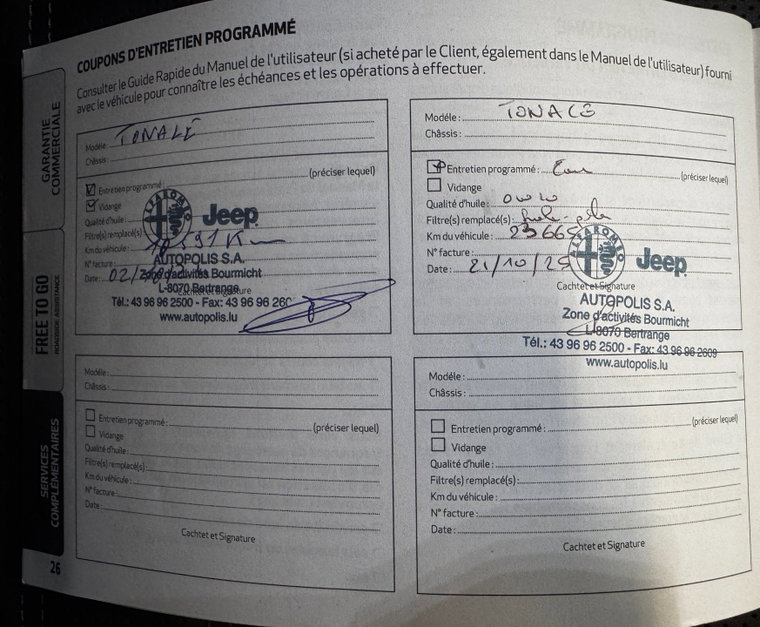 COUPONS D'ENTRETIEN PROGRAMMÉ
Consulter le Guide Rapide du Manuel de l'utilisateur (si acheté par le Client, également dans le Manuel de l'utilisateur) fourni
avec le véhicule pour connaître les échéances et les opérations à effectuer.
GARANTIE
COMMERCIALE
FREE TO GO
ROADSIDE ASSISTANCE
SERVICES
COMPLÉMENTAIRES
Modèle: TONALE
Châssis:
(préciser lequel)
Entretien programmé
Vidange
Qualité d'huile:
Filtre(s) remplacé(s)
Km du véhicule: Km
N° facture:
Date: 02/
Cachet et Signature
ALFA ROMEO
Jeep
AUTOPOLIS S.A.
Zone d'activités Bourmicht
L-8070 Bertrange
Tél.: 43 96 96 2500 - Fax: 43 96 96
www.autopolis.lu
Modèle: TONALE
Châssis:
Entretien programmé: (préciser lequel)
Vidange
Qualité d'huile: 0W20
Filtre(s) remplacé(s):
Km du véhicule: 23665
N° facture:
Date: 21/10/25
Cachet et Signature
ALFA ROMEO
Jeep
AUTOPOLIS S.A.
Zone d'activités Bourmicht
L-8070 Bertrange
Tél.: 43 96 96 2500 - Fax: 43 96 96 2609
www.autopolis.lu
Modèle:
Châssis:
Entretien programmé: (préciser lequel)
Vidange
Qualité d'huile:
Filtre(s) remplacé(s):
Km du véhicule:
N° facture:
Date:
Cachtet et Signature
Modèle:
Châssis:
(préciser lequel)
Entretien programmé:
Vidange
Qualité d'huile:
Filtre(s) remplacé(s):
Km du véhicule:
N° facture:
Date:
Cachtet et Signature
26